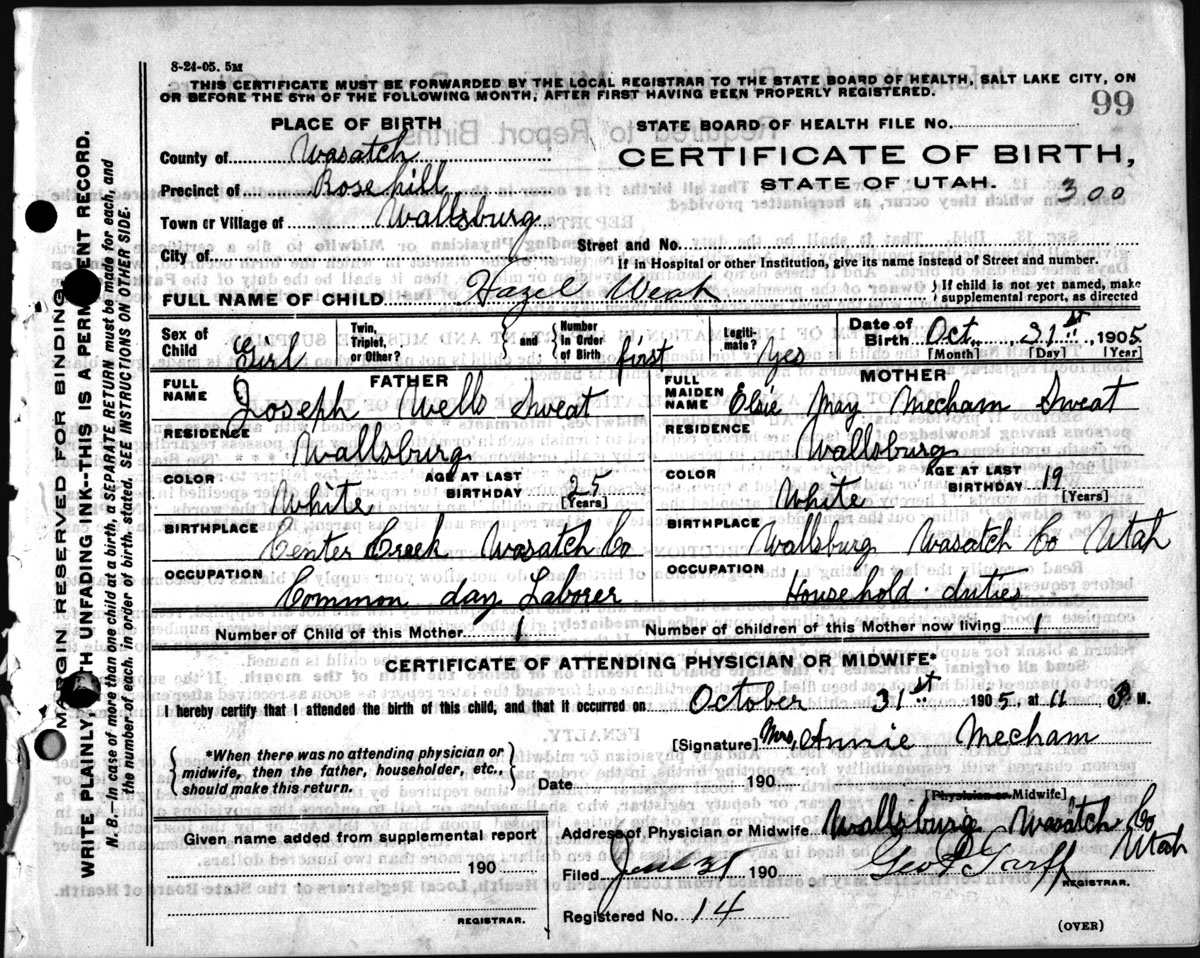 8-24-05. 5M
THIS CERTIFICATE MUST BE FORWARDED BY THE LOCAL REGISTRAR TO THE STATE BOARD OF HEALTH, SALT LAKE CITY, ON
OR BEFORE THE 5TH OF THE FOLLOWING MONTH, AFTER FIRST HAVING BEEN PROPERLY REGISTERED.
99
PLACE OF BIRTH
STATE BOARD OF HEALTH FILE NO.
County of Wasatch
CERTIFICATE OF BIRTH,
Precinct of Rose hill
STATE OF UTAH. 300
Town or Village of Wallsburg
Street and No.
City of
If in Hospital or other Institution, give its name instead of Street and number.
FULL NAME OF CHILD Hazel
} If child is not yet named, make
supplemental report, as directed
Sex of Child Girl
Twin, Triplet, or Other?
and
Number in Order of Birth first
Legiti-mate? yes
Date of Birth Oct. 31st 1905
[Month] [Day] [Year]
FATHER
FULL NAME Joseph Wells Sweat
MOTHER
FULL MAIDEN NAME Elsie May Mecham Sweat
RESIDENCE Wallsburg
RESIDENCE Wallsburg
COLOR White
AGE AT LAST BIRTHDAY 25 [Years]
COLOR White
AGE AT LAST BIRTHDAY 19 [Years]
BIRTHPLACE Center Creek Wasatch Co
BIRTHPLACE Wallsburg Wasatch Co Utah
OCCUPATION Common day Laborer
OCCUPATION Household duties
Number of Child of this Mother 1
Number of children of this Mother now living 1
CERTIFICATE OF ATTENDING PHYSICIAN OR MIDWIFE*
I hereby certify that I attended the birth of this child, and that it occurred on October 31st 1905, at 11 P M.
*When there was no attending physician or
midwife, then the father, householder, etc.,
should make this return.
[Signature] Mrs. Annie Mecham
Date 190
[Physician or Midwife]
Given name added from supplemental report
190
REGISTRAR.
Address of Physician or Midwife Wallsburg Wasatch Co
Utah
Filed 190
REGISTRAR.
Registered No. 14
(OVER)
MARGIN RESERVED FOR BINDING
WRITE PLAINLY, WITH UNFADING INK--THIS IS A PERMANENT RECORD.
N. B.--In case of more than one child at a birth, a SEPARATE RETURN must be made for each, and
the number of each, in order of birth, stated. SEE INSTRUCTIONS ON OTHER SIDE.